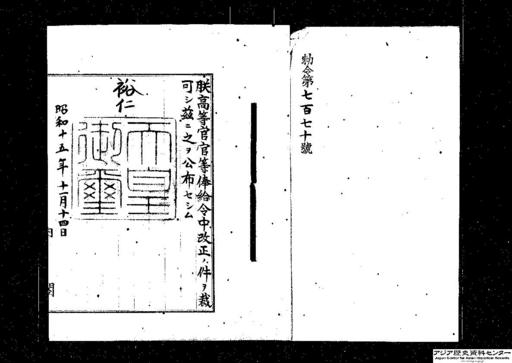 勅令第七百七十號
朕高等官官等俸給令中改正ノ件ヲ裁
可シ茲ニ之ヲ公布セシム
裕仁
天皇
御璽
昭和十五年十一月十四日
内閣
アジア歴史資料センター
Japan Center for Asian Historical Records